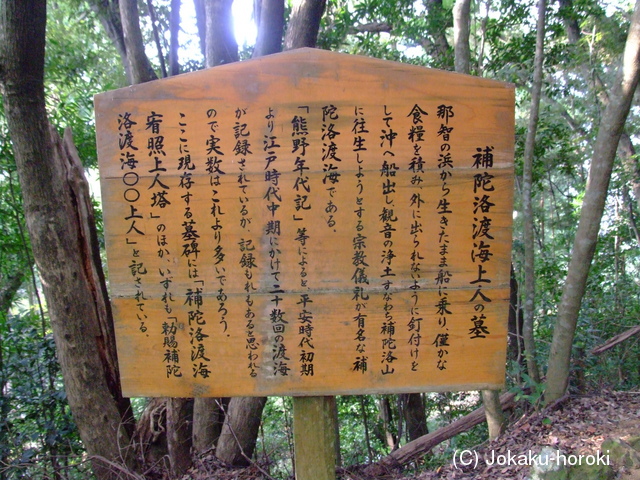 補陀洛渡海上人の墓
那智の浜から生きたまま船に乗り、僅かな
食糧を積み、外に出られないように釘付けを
して沖へ船出し、観音の浄土すなわち補陀洛山
に往生しようとする宗教儀礼が有名な補
陀洛渡海である。
「熊野年代記」等によると、平安時代初期
より江戸時代中期にかけて、二十数回の渡海
が記録されているが、記録もれもあると思われる
ので実数はこれより多いであろう。
ここに現存する墓碑には「補陀洛渡海
宥照上人塔」のほか、いずれも「勅賜補陀
洛渡海〇〇上人」と記されている。
(C) Jokaku-horoki